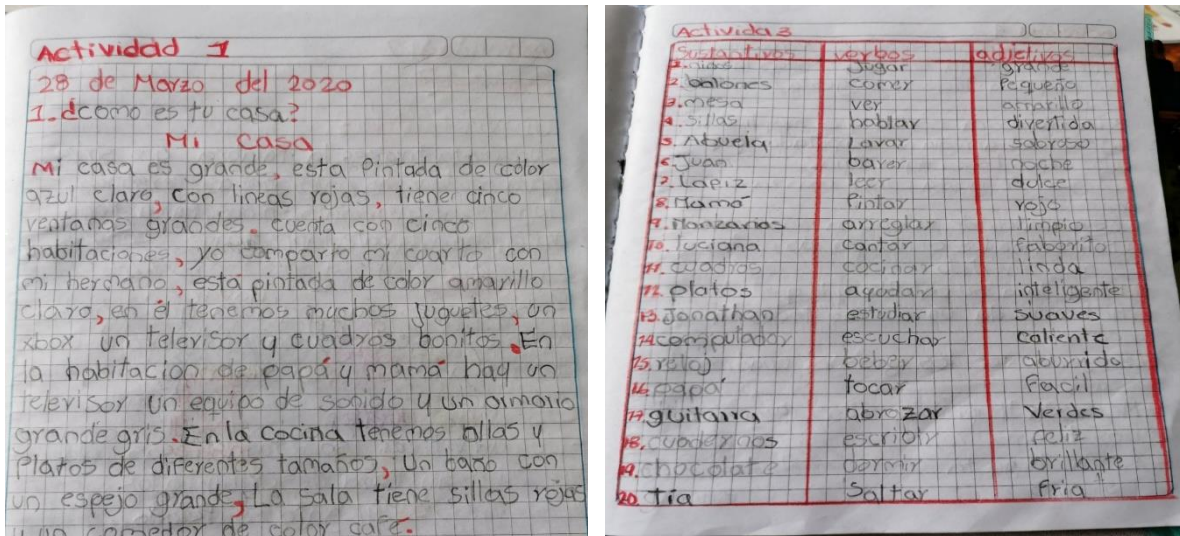 Actividad 1
28 de Marzo del 2020
1. ¿como es tu casa?
Mi Casa
Mi casa es grande, esta Pintada de color
azul claro, con lineas rojas, tiene cinco
ventanas grandes. cuenta con cinco
habitaciones, yo comparto mi cuarto con
mi hermano, esta pintada de color amarillo
claro, en él tenemos muchos juguetes, un
xbox un televisor y cuadros bonitos. En
la habitacion de papá y mamá hay un
televisor un equipo de sonido y un armario
grande gris. En la cocina tenemos ollas y
Platos de diferentes tamaños, Un baño con
un espejo grande, La sala tiene sillas rojas
y un comedor de color café.
Activida 3
Sustantivos verbos adjetivos
1. niños Jugar grande
2. balones comer Pequeño
3. mesa ver amarillo
4. sillas hablar divertida
5. Abuela Lavar sabroso
6. Juan barer noche
7. Lapiz leer dulce
8. Mamá Pintar rojo
9. Manzanas arreglar limpio
10. luciana cantar faborito
11. cuadros cocinar linda
12. platos ayudar inteligente
13. Jonathan estudiar suaves
14. computador escuchar caliente
15. reloj beber aburrido
16. papá tocar Facil
17. guitarra abrazar Verdes
18. cuadernos escribir feliz
19. chocolate dormir brillante
20. tia Saltar fria